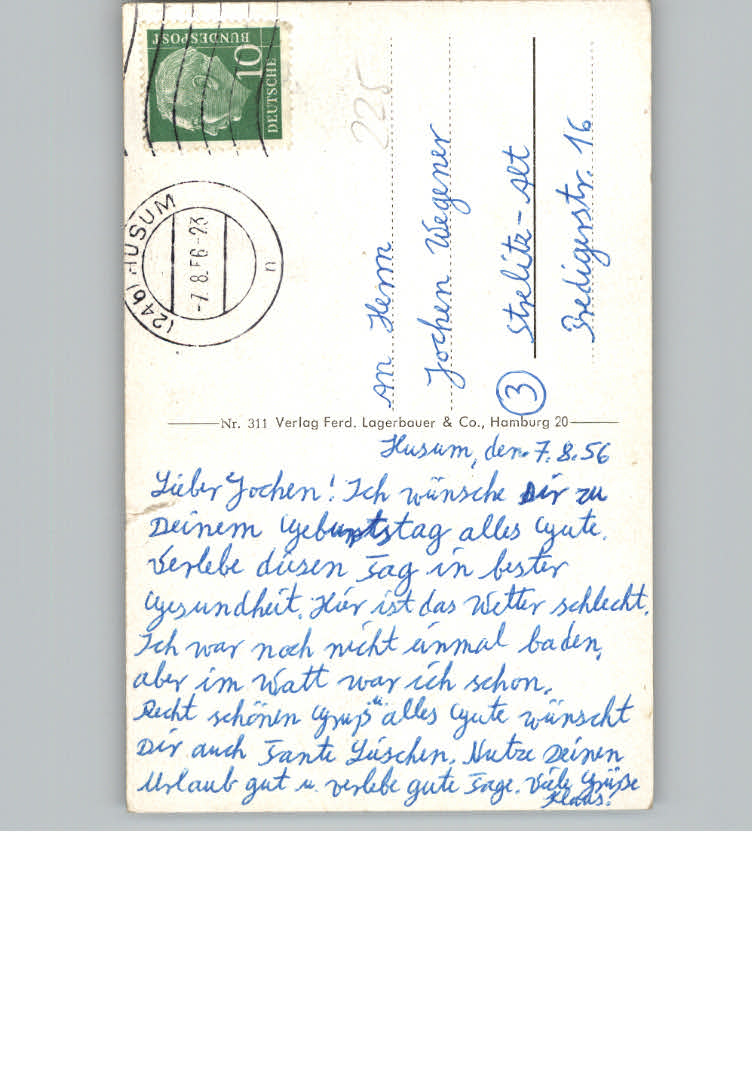 DEUTSCHE
BUNDESPOST
10
(24b) HUSUM
-7.8.56-23
n
225
An Herrn
Jochen Wegener
(3) Strelitz-Alt
Predigerstr. 16
Nr. 311 Verlag Ferd. Lagerbauer & Co., Hamburg 20
Husum, den 7.8.56
Lieber Jochen! Ich wünsche Dir zu
Deinem Geburtstag alles Gute.
Verlebe diesen Tag in bester
Gesundheit. Hier ist das Wetter schlecht.
Ich war noch nicht einmal baden,
aber im Watt war ich schon.
Recht schönen Gruß u. alles Gute wünscht
Dir auch Tante Lieschen. Nutze Deinen
Urlaub gut u. verlebe gute Tage. Viele Grüße
Klaus.